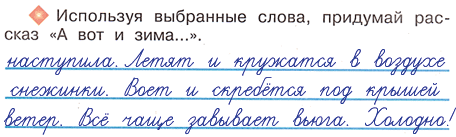 Используя выбранные слова, придумай рас-
сказ «А вот и зима...».
наступила. Летят и кружатся в воздухе
снежинки. Воет и скребётся под крышей
ветер. Всё чаще завывает вьюга. Холодно!